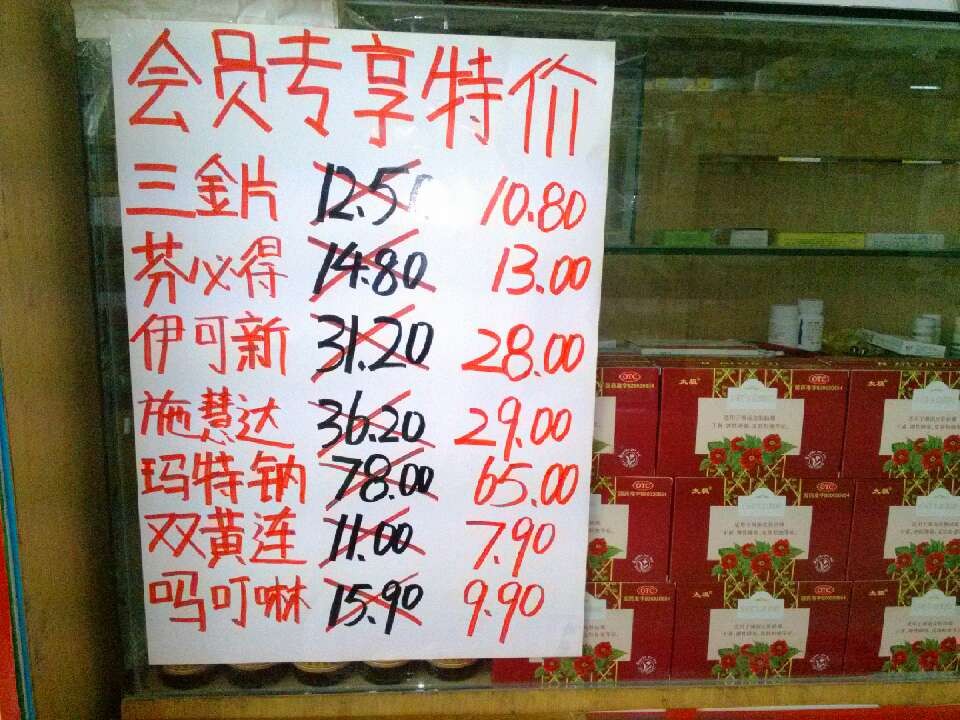 会员专享特价
三金片 12.50 10.80
芬必得 14.80 13.00
伊可新 31.20 28.00
施慧达 36.20 29.00
玛特钠 78.00 65.00
双黄连 11.00 7.90
吗叮啉 15.90 9.90
OTC
太极 OTC
太极
OTC
太极 OTC
太极
OTC
太极 OTC
太极